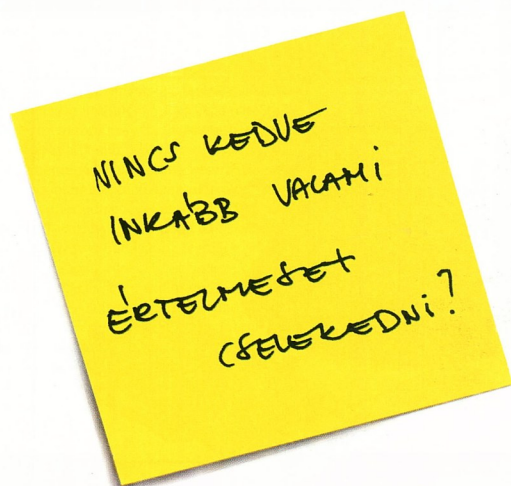 NINCS KEDVE
INKÁBB VALAMI
ÉRTELMESET
CSELEKEDNI?